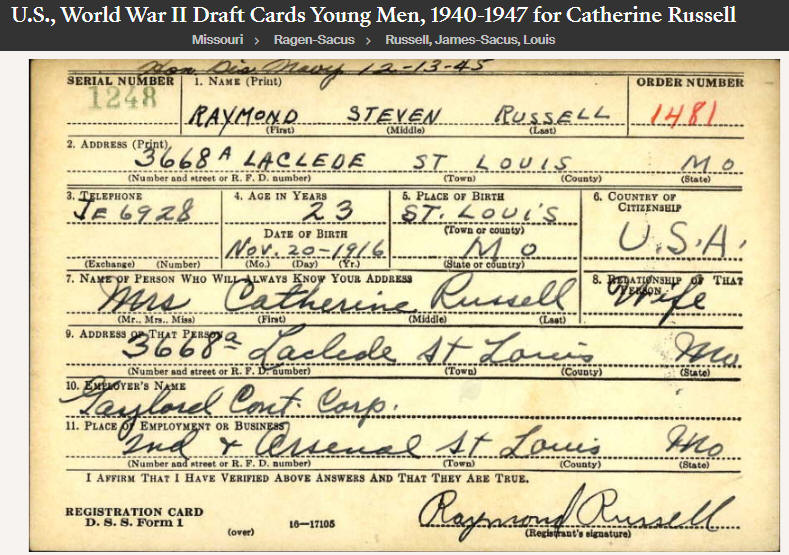 U.S., World War II Draft Cards Young Men, 1940-1947 for Catherine Russell
Missouri > Ragen-Sacus > Russell, James-Sacus, Louis
Hon Dis Navy 12-13-45
SERIAL NUMBER 1. NAME (Print) ORDER NUMBER
1248 RAYMOND STEVEN RUSSELL 1481
(First) (Middle) (Last)
2. ADDRESS (Print)
3668A LACLEDE ST LOUIS MO
(Number and street or R. F. D. number) (Town) (County) (State)
3. TELEPHONE 4. AGE IN YEARS 5. PLACE OF BIRTH 6. COUNTRY OF CITIZENSHIP
JE 6928 23 ST. LOUIS
DATE OF BIRTH (Town or county) U.S.A.
Nov. 20-1916 MO
(Exchange) (Number) (Mo.) (Day) (Yr.) (State or country)
7. NAME OF PERSON WHO WILL ALWAYS KNOW YOUR ADDRESS 8. RELATIONSHIP OF THAT PERSON
Mrs Catherine Russell Wife
(Mr., Mrs., Miss) (First) (Middle) (Last)
9. ADDRESS OF THAT PERSON
3668a Laclede St Louis Mo
(Number and street or R. F. D. number) (Town) (County) (State)
10. EMPLOYER'S NAME
Gaylord Cont. Corp.
11. PLACE OF EMPLOYMENT OR BUSINESS
2nd + Arsenal St Louis Mo
(Number and street or R. F. D. number) (Town) (County) (State)
I AFFIRM THAT I HAVE VERIFIED ABOVE ANSWERS AND THAT THEY ARE TRUE.
REGISTRATION CARD Raymond Russell
D. S. S. Form 1 (over) 16-17105 (Registrant's signature)